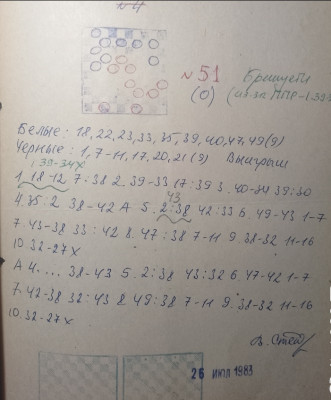 № 51
(0) (из-за ППР-1.39
Белые: 18, 22, 23, 33, 35, 39, 40, 47, 49 (9)
Черные: 1, 7-11, 17, 20, 21 (9) Выигрыш
39-34X
1. 18-12 7:38 2. 39-33 17:39 3. 40-34 39:30
43
4. 35:2 38-42 A 5. 2:38 42:33 6. 49-43 1-7
7. 43-38 33:42 8. 47:38 7-11 9. 38-32 11-16
10. 32-27X
A 4.... 38-43 5. 2:38 43:32 6. 47-42 1-7
7. 42-38 32:43 8. 49:38 7-11 9. 38-32 11-16
10. 32-27X
25 ИЮЛ 1983